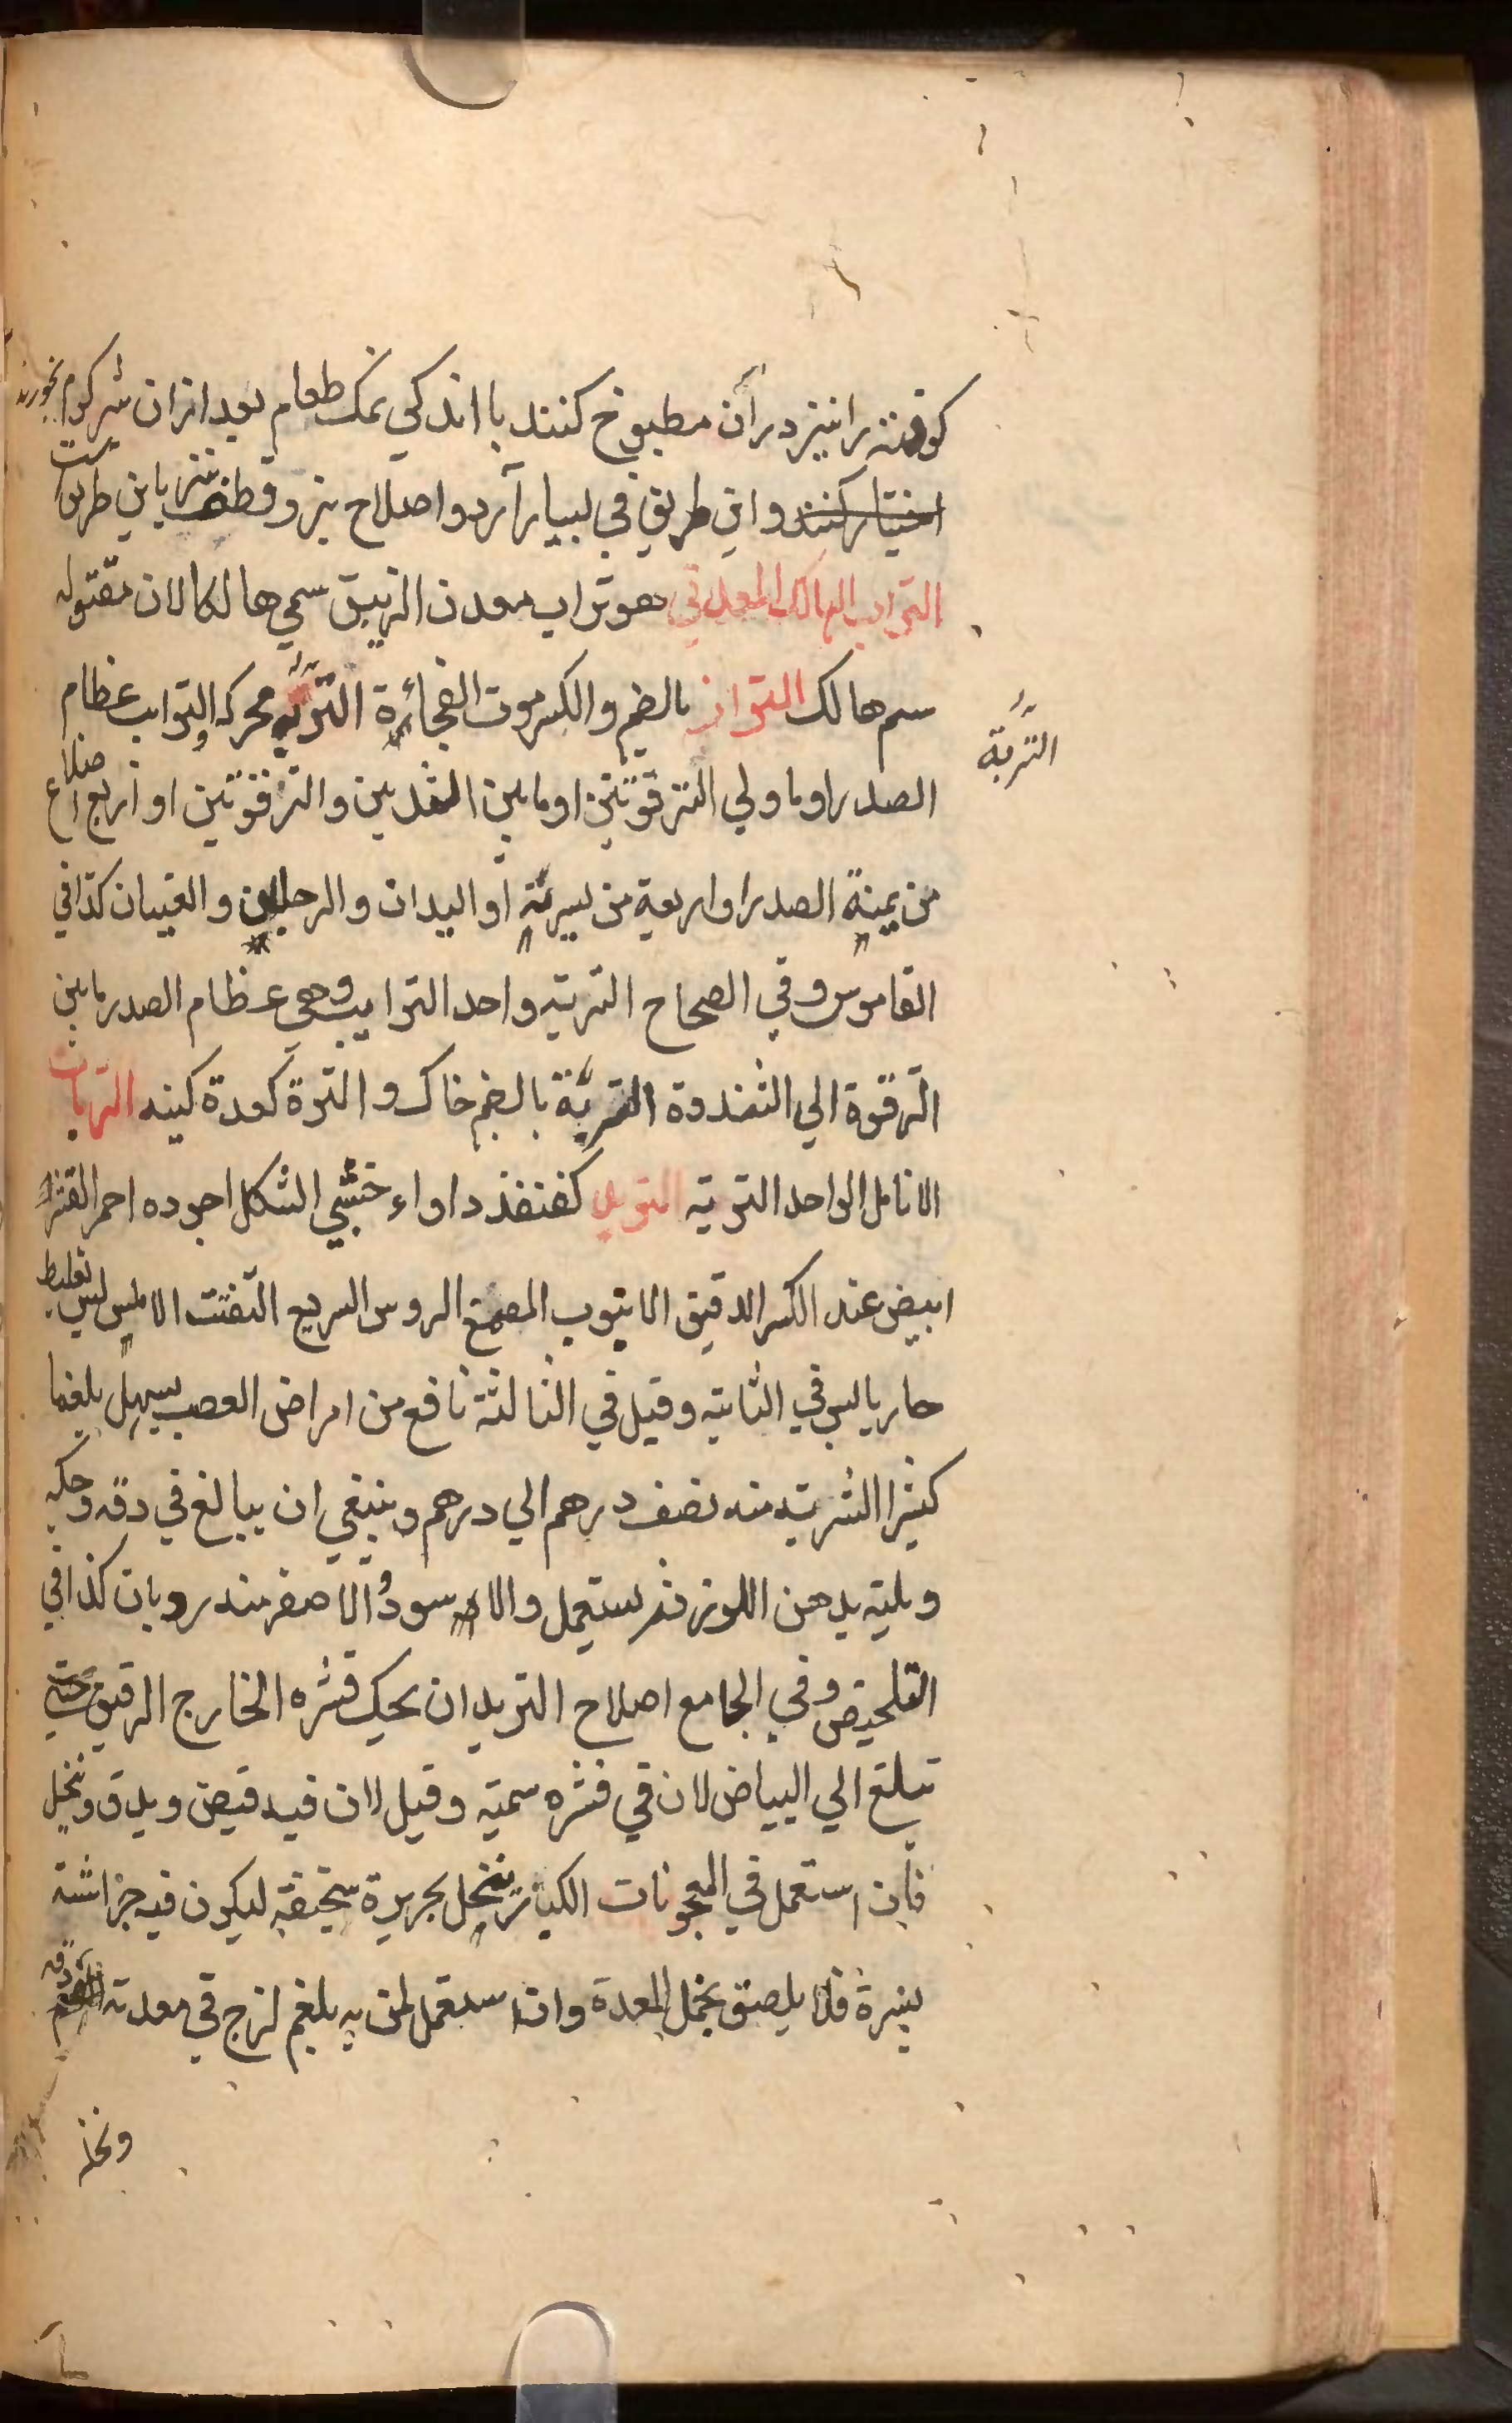 كوفته را نیز در آن مطبوخ كنند با اندكی نمک طعام بعد ازان شر كرم بخورند
اختیار كنند و این طریق قی بسیار آرد و اصلاح بزر قطف نیز باین طریق است
التراب الهالك المعدني هو تراب معدن الزيبق سمي هالكا لان مقتوله
سم هالك التراز بالضم والكسر موت الفجائة التربة محركه والترايب عظام
الصدر اوما ولي الترقوتين اومابين الثديين والترقوتين او اربع اضلاع
من يمنة الصدر او اربعة من يسرته او اليدان والرجلان والعينان كذا في
القاموس وفي الصحاح التريبة واحد الترايب وهي عظام الصدر مابين
الترقوة الي الثندوة التربة بالضم خاك والترة كعدة كينه التربات
الانامل الواحد التربة التربد كقنفذ دواء خشبي الشكل اجوده احمر القشر
ابيض عند الكسر الدقيق الانبوب المصمغ الروس السريع التفتت الاملس ليس بغليظ
حار يابس في الثانية وقيل في الثالثة نافع من امراض العصب يسهل بلغما
كثيرا الشربة منه نصف درهم الي درهم وينبغي ان يبالغ في دقه وحكه
ويلته بدهن اللوز ثم يستعمل والاسود والاصفر منه رديان كذا في
التلخيص وفي الجامع اصلاح التربد ان يحك قشره الخارج الرقيق حتي
تبلغ الي البياض لان في قشره سمية وقيل لان فيه قبض ويدق وينخل
فان استعمل في المعجونات الكبار ينخل بحريرة سخيفة ليكون فيه جزاشة
يسيرة فلا يلصق بخمل المعدة وان استعمل لمن به بلغم لزج في معدته انعم دقه
ونخله
التربة